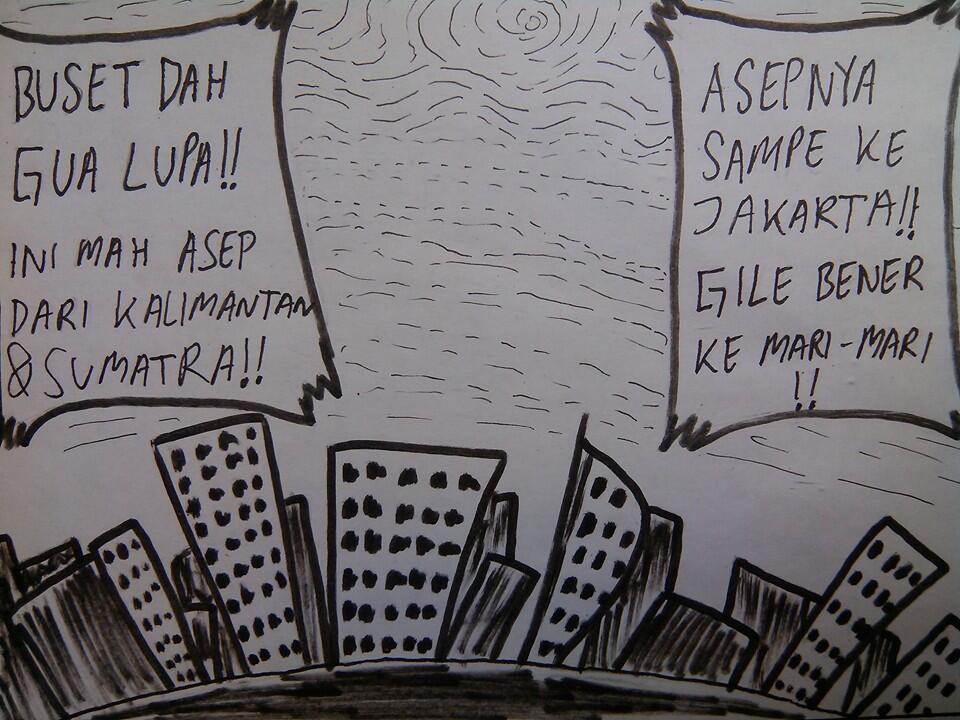 BUSET DAH
GUA LUPA!!
INI MAH ASEP
DARI KALIMANTAN
& SUMATRA!!
ASEPNYA
SAMPE KE
JAKARTA!!
GILE BENER
KE MARI-MARI
!!